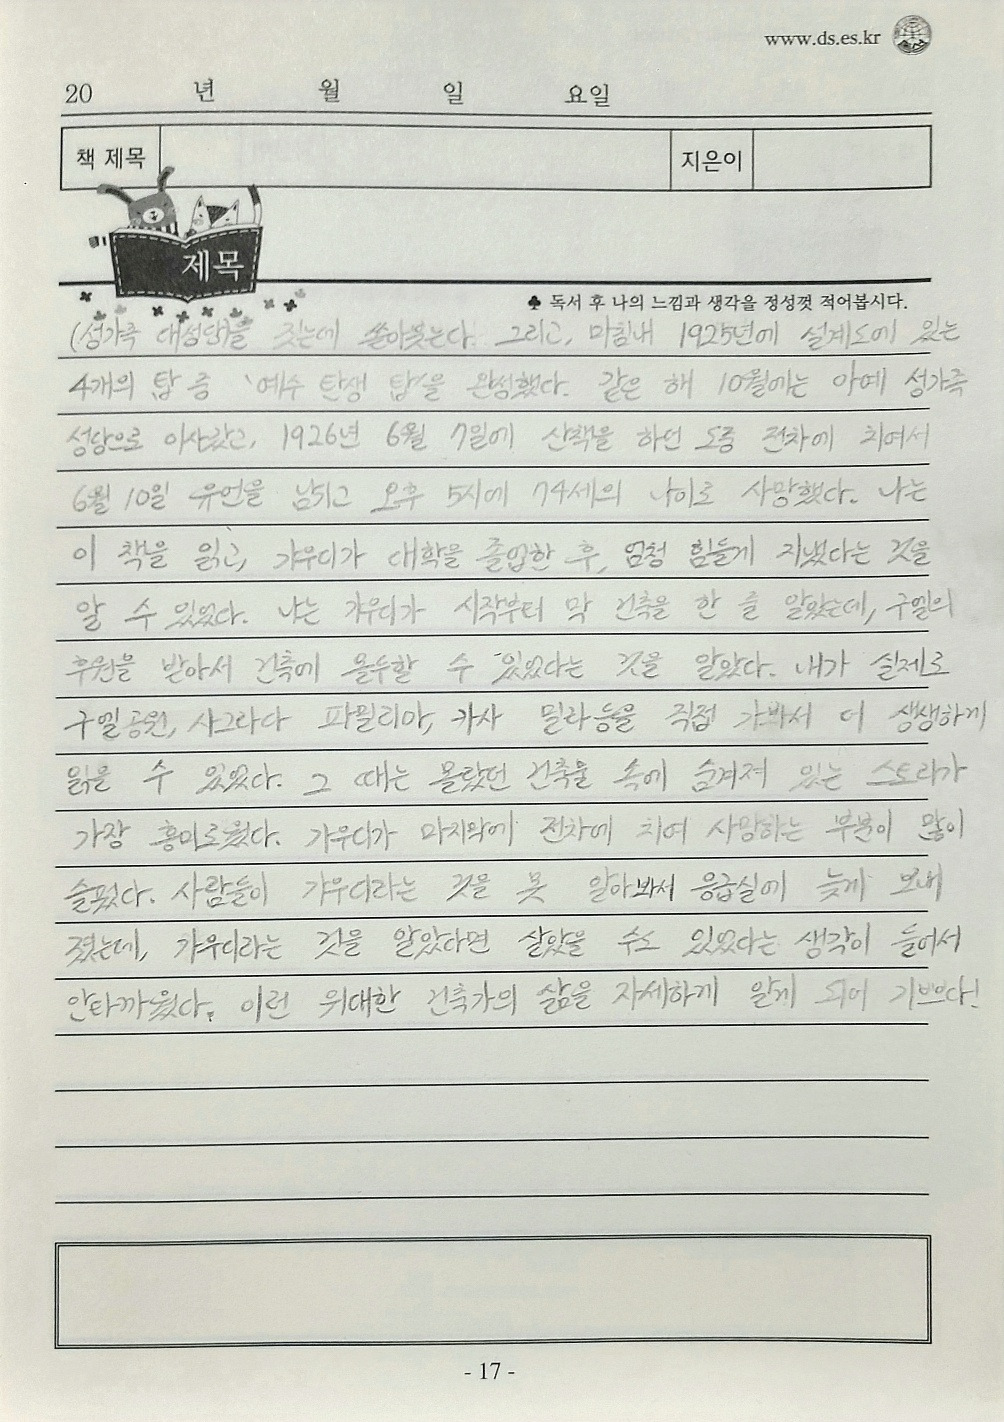 www.ds.es.kr
20 년 월 일 요일
책 제목 지은이
제목
♣ 독서 후 나의 느낌과 생각을 정성껏 적어봅시다.
(성가족 대성당)를 짓는데 쏟아붓는다. 그리고, 마침내 1925년에 설계도에 있는
4개의 탑 중 '예수 탄생 탑'을 완성했다. 같은 해 10월에는 아예 성가족
성당으로 이사갔고, 1926년 6월 7일에 산책을 하던 도중 전차에 치여서
6월 10일 유언을 남기고 오후 5시에 74세의 나이로 사망했다. 나는
이 책을 읽고, 가우디가 대학을 졸업한 후, 엄청 힘들게 지냈다는 것을
알 수 있었다. 나는 가우디가 시작부터 막 건축을 한 줄 알았는데, 구엘의
후원을 받아서 건축에 몰두할 수 있었다는 것을 알았다. 내가 실제로
구엘공원, 사그라다 파밀리아, 카사 밀라 등을 직접 가봐서 더 생생하게
읽을 수 있었다. 그 때는 몰랐던 건축물 속에 숨겨져 있는 스토리가
가장 흥미로웠다. 가우디가 마지막에 전차에 치여 사망하는 부분이 많이
슬펐다. 사람들이 가우디라는 것을 못 알아봐서 응급실에 늦게 보내
졌는데, 가우디라는 것을 알았다면 살았을 수도 있었다는 생각이 들어서
안타까웠다. 이런 위대한 건축가의 삶을 자세하게 알게 되어 기쁘다!
- 17 -